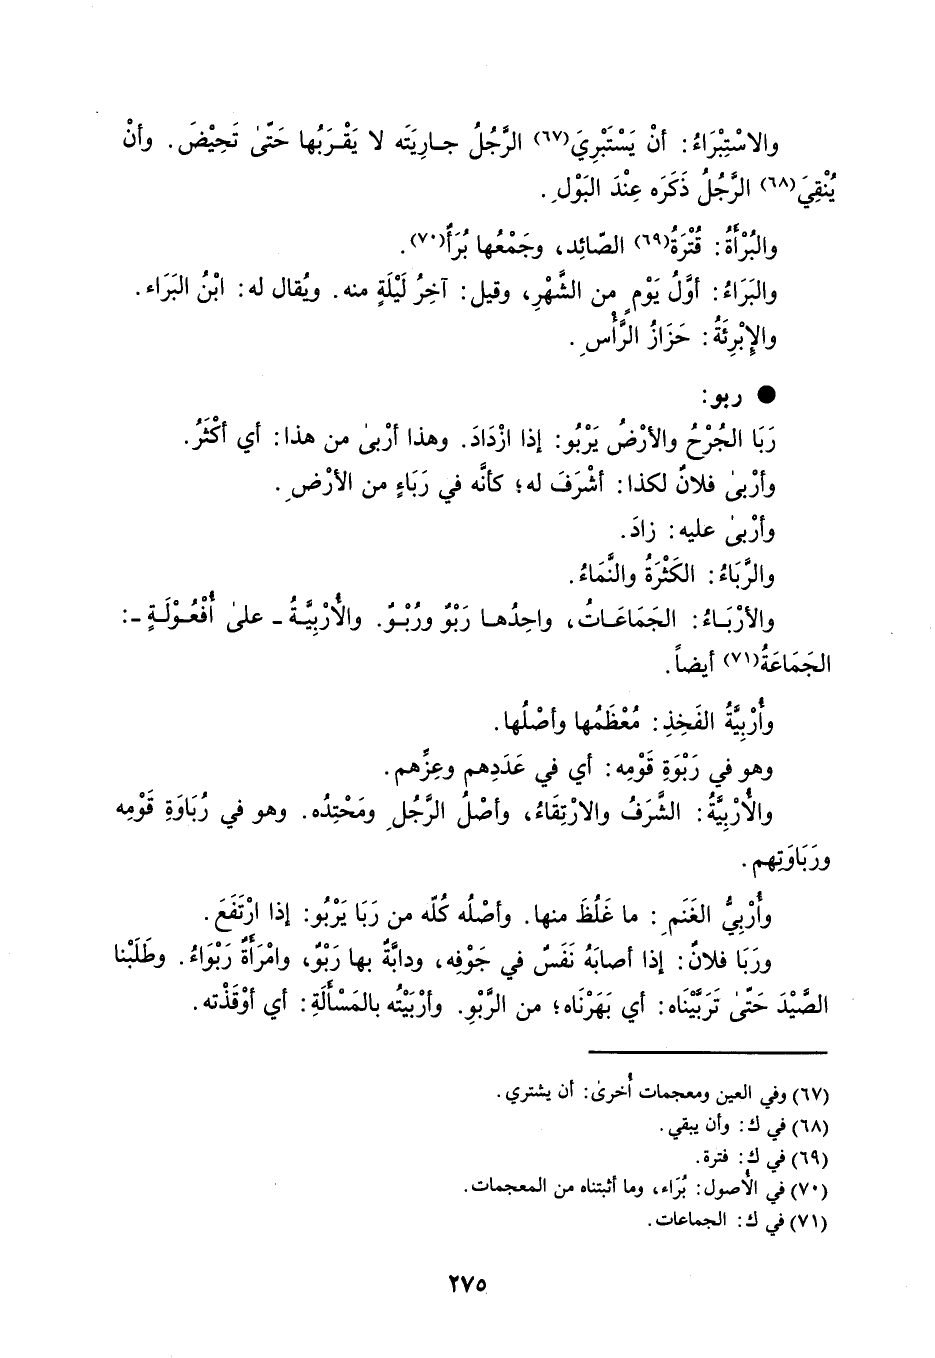 والاسْتِبْرَاءُ: أنْ يَسْتَبْرِيَ(٦٧) الرَّجُلُ جـارِيَتَه لا يَقْـرَبُها حَتّىٰ تَحِيْضَ. وأنْ
يُنْقِيَ(٦٨) الرَّجُلُ ذَكَرَه عِنْدَ البَوْلِ.
والبُرْأَةُ: قُتْرَةُ(٦٩) الصّائِد، وجَمْعُها بُرَأٌ(٧٠).
والبَرَاءُ: أوَّلُ يَوْمٍ من الشَّهْرِ، وقيل: آخِرُ لَيْلَةٍ منه. ويُقال له: ابْنُ البَرَاء.
والإِبْرِئَةُ: حَزَازُ الرَّأْسِ.
● ربو:
رَبَا الجُرْحُ والأرْضُ يَرْبُو: إذا ازْدَادَ. وهذا أرْبىٰ من هذا: أي أكْثَرُ.
وأرْبىٰ فلانٌ لكذا: أشْرَفَ له؛ كأنَّه في رَبَاءٍ من الأرْضِ.
وأرْبىٰ عليه: زادَ.
والرَّبَاءُ: الكَثْرَةُ والنَّمَاءُ.
والأرْبَـاءُ: الجَمَاعَـاتُ، واحِدُهـا رَبْوٌ ورُبْـوٌ. والأُرْبِيَّـةُ ـ علىٰ أُفْعُـوْلَـةٍ ـ:
الجَمَاعَةُ(٧١) أيضاً.
وأُرْبِيَّةُ الفَخِذِ: مُعْظَمُها وأصْلُها.
وهو في رَبْوَةِ قَوْمِه: أي في عَدَدِهم وعِزِّهم.
والأُرْبِيَّةُ: الشَّرَفُ والارْتِقَاءُ، وأصْلُ الرَّجُلِ ومَحْتِدُه. وهو في رُبَاوَةِ قَوْمِه
ورَبَاوَتِهم.
وأُرْبِيُّ الغَنَمِ: ما غَلُظَ منها. وأصْلُه كُلّه من رَبَا يَرْبُو: إذا ارْتَفَعَ.
ورَبَا فلانٌ: إذا أصابَهُ نَفَسٌ في جَوْفِه، ودابَّةٌ بها رَبْوٌ، وامْرَأَةٌ رَبْوَاءُ. وطَلَبْنا
الصَّيْدَ حَتّىٰ تَرَبَّيْنَاه: أي بَهَرْنَاه؛ من الرَّبْوِ. وأرْبَيْتُه بالمَسْأَلَةِ: أي أوْقَذْته.
(٦٧) وفي العين ومعجمات أُخرىٰ: أن يشتري.
(٦٨) في ك: وأن يبقي.
(٦٩) في ك: فترة.
(٧٠) في الأُصول: بُرَاء، وما أثبتناه من المعجمات.
(٧١) في ك: الجماعات.
٢٧٥